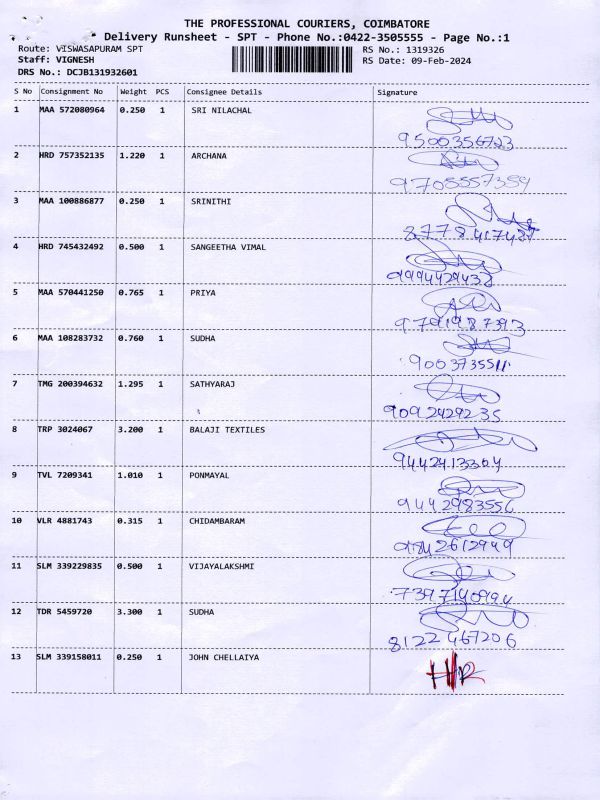 THE PROFESSIONAL COURIERS, COIMBATORE
Delivery Runsheet - SPT - Phone No.:0422-3505555 - Page No.:1
Route: VISWASAPURAM SPT RS No.: 1319326
Staff: VIGNESH RS Date: 09-Feb-2024
DRS No.: DCJB131932601
S No Consignment No Weight PCS Consignee Details Signature
1 MAA 572080964 0.250 1 SRI NILACHAL
9500356723
2 HRD 757352135 1.220 1 ARCHANA
9705557359
3 MAA 100886877 0.250 1 SRINITHI
8778417487
4 HRD 745432492 0.500 1 SANGEETHA VIMAL
9994429438
5 MAA 570441250 0.765 1 PRIYA
9791987393
6 MAA 108283732 0.760 1 SUDHA
9003735511
7 TMG 200394632 1.295 1 SATHYARAJ
9092429235
8 TRP 3024067 3.200 1 BALAJI TEXTILES
9442413304
9 TVL 7209341 1.010 1 PONMAYAL
9442983556
10 VLR 4881743 0.315 1 CHIDAMBARAM
9842612949
11 SLM 339229835 0.500 1 VIJAYALAKSHMI
7397140994
12 TDR 5459720 3.300 1 SUDHA
8122467206
13 SLM 339158011 0.250 1 JOHN CHELLAIYA